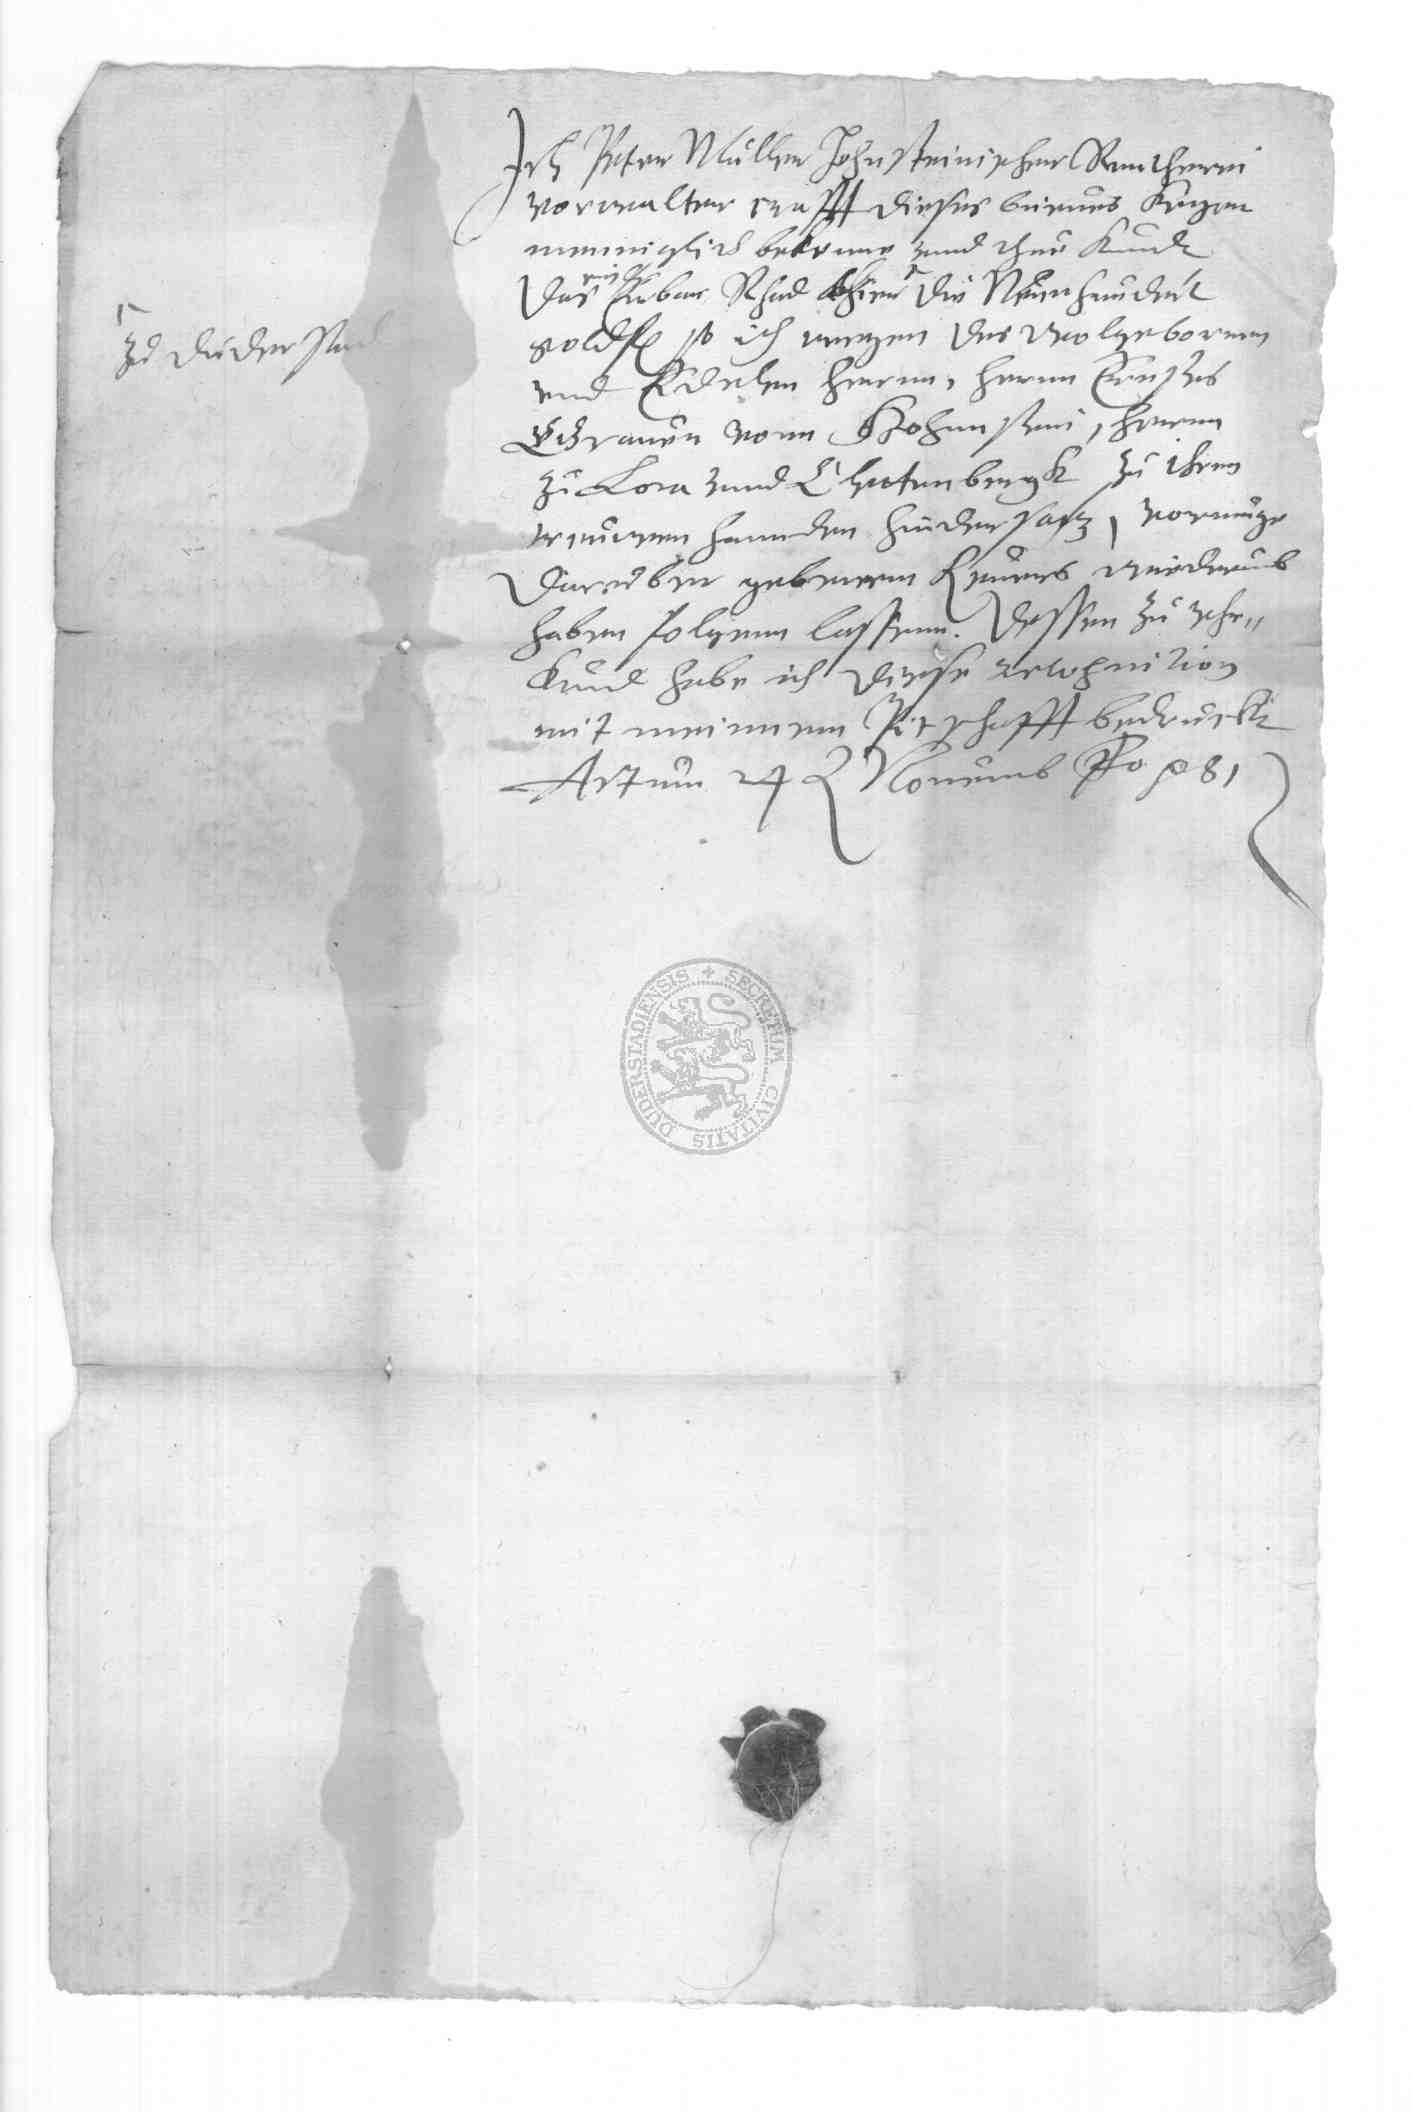 Ich Peter Müller Hohnsteinischer Renttherei
vorwalter crafft dieses brieues kegen
menniglich bekenne vnnd thue kundt
Das ein Erbar Rhad ⌜ Die Neunhundert
goldfl so ich wegen des Wolgebornen
vnd Edelen herrnn, herrnn Ernstes
Grauen vonn Hohnnstein, herrnn
zu Lora vnnd Clettenbergk zu ihren
trewenn hannden hindersatz, vormuge
Daruber gebenenn Reuers wiederumb
haben folgenn lassenn. Dessen zu vhr„
kund habe ich diese recognition
mit meinnem Pitzschafft bedruckt
Actum 24 Nouemb Ao 81
⌜ zu Duderstad
SECRETUM CIVITATIS DUDERSTADIENSIS